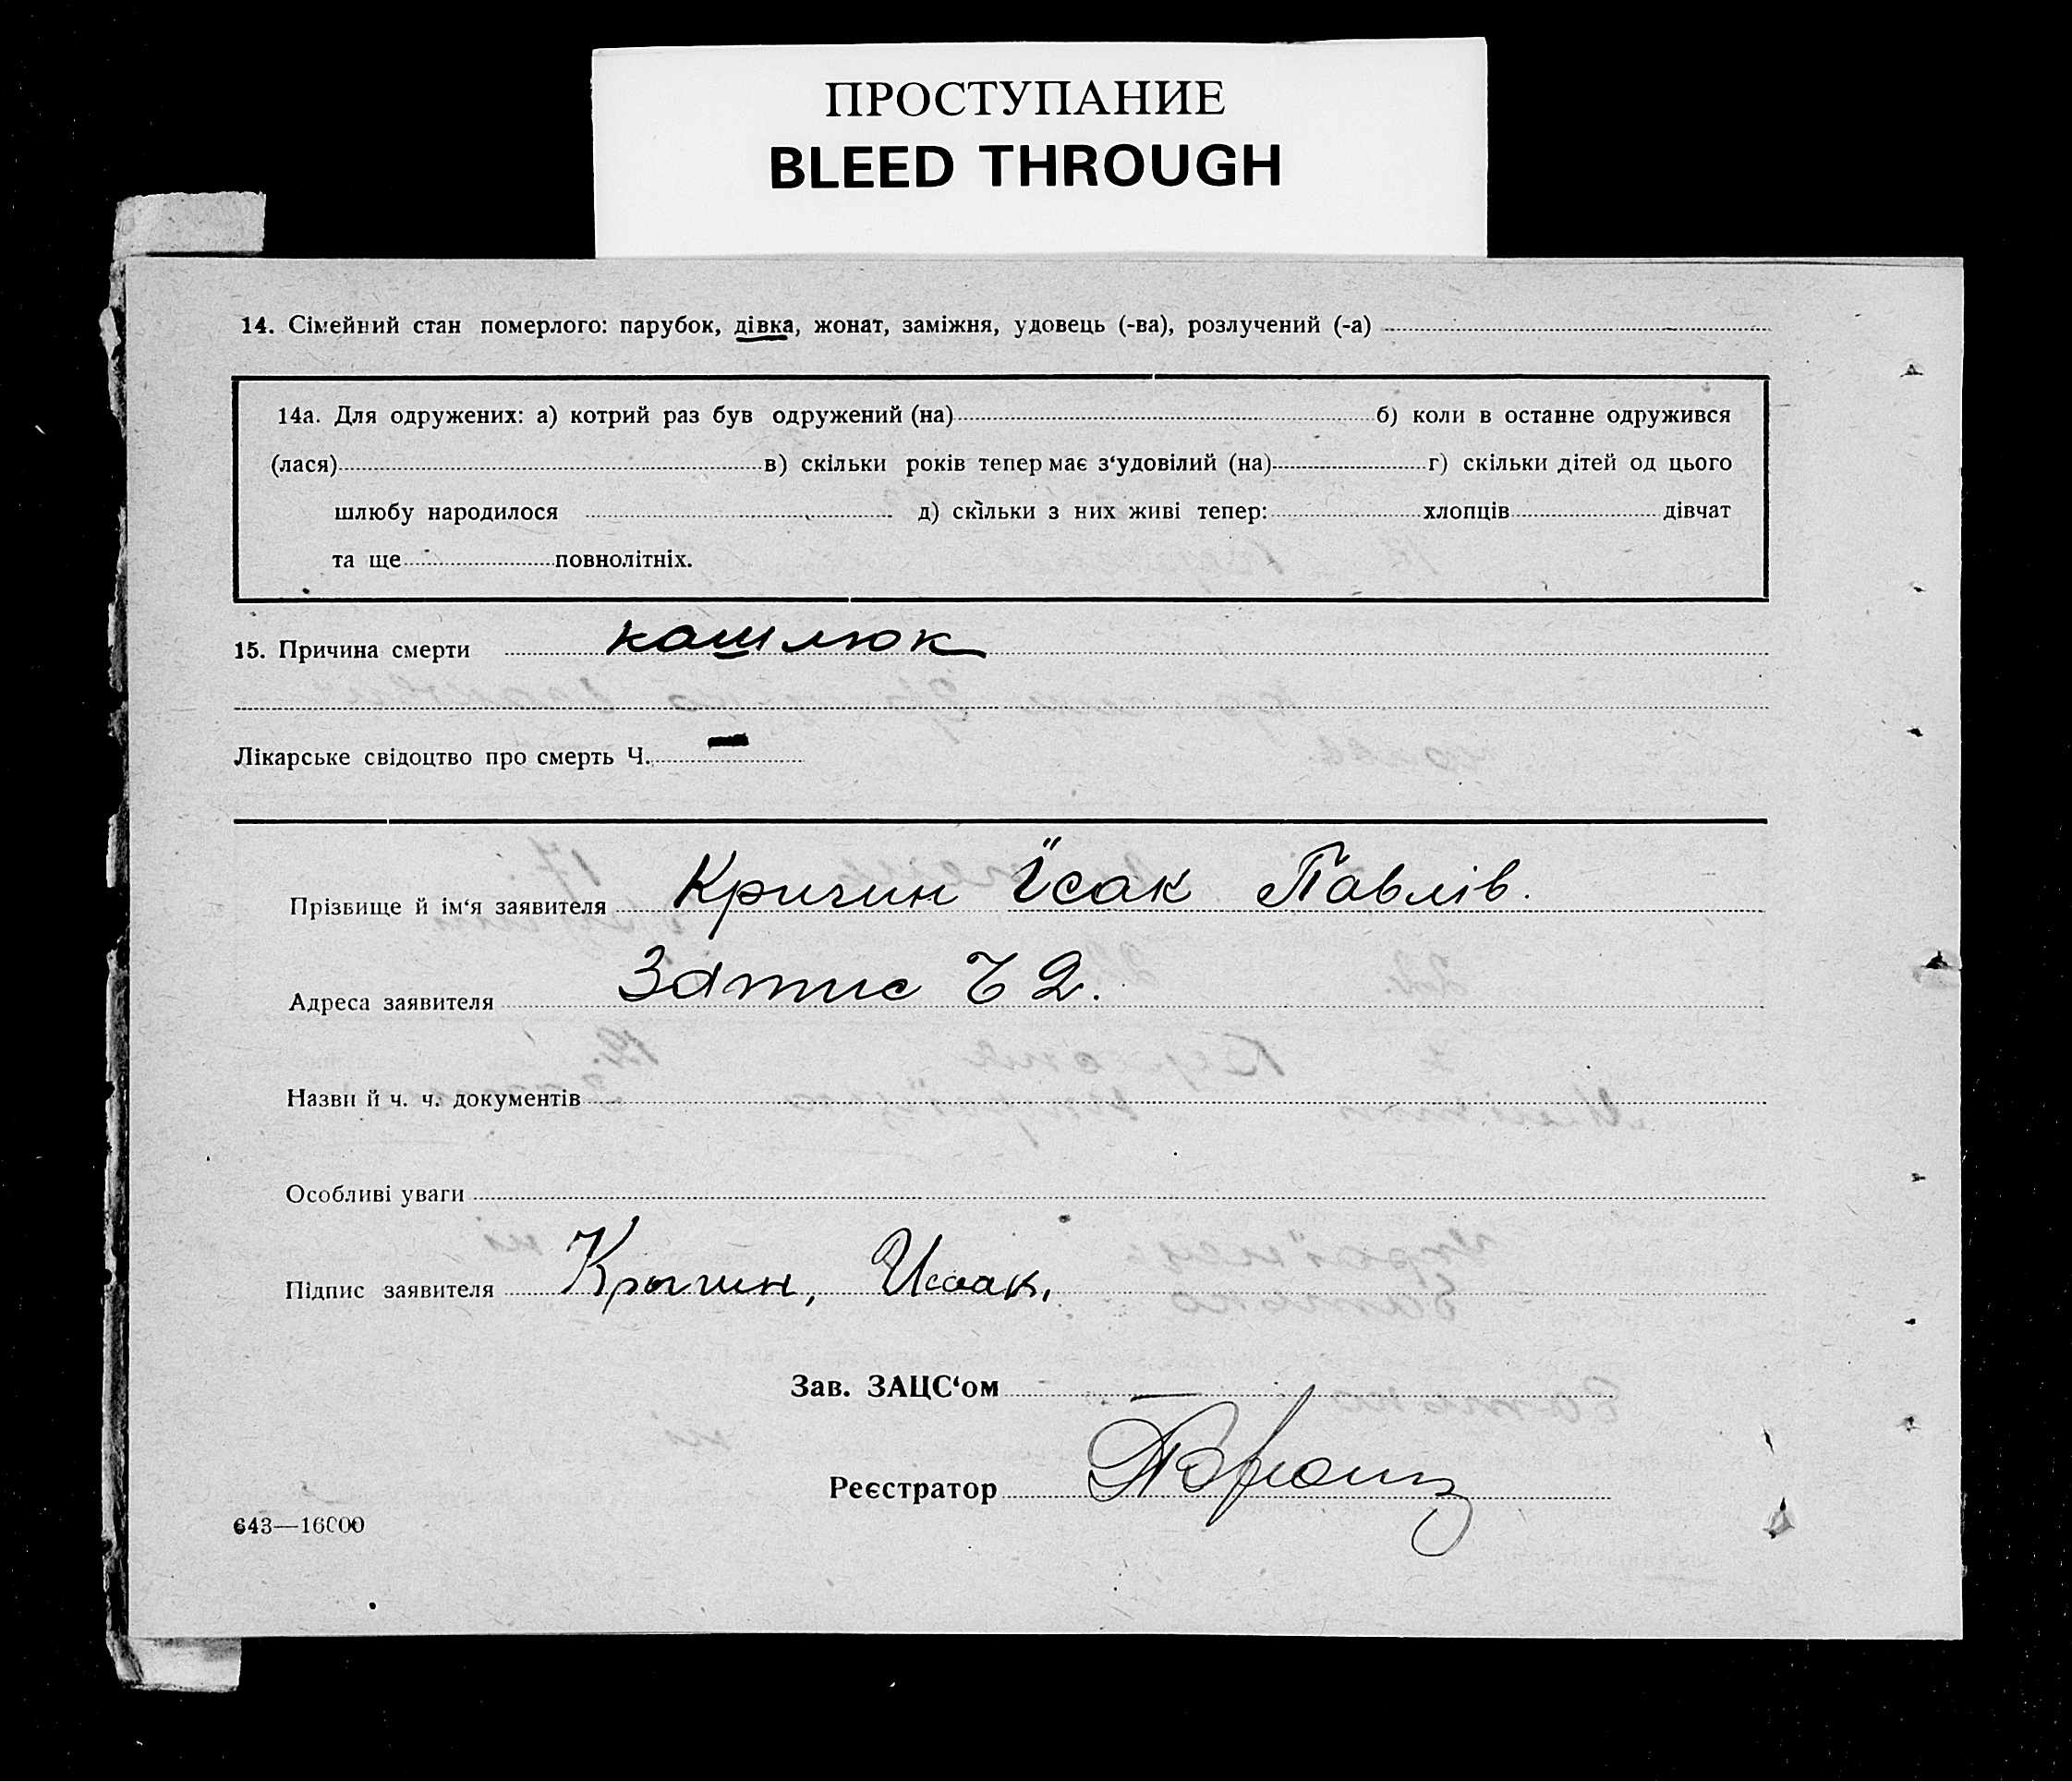 ПРОСТУПАНИЕ
BLEED THROUGH
14. Сімейний стан померлого: парубок, дівка, жонат, заміжня, удовець (-ва), розлучений (-а)
14а. Для одружених: а) котрий раз був одружений (на) б) коли в останнє одружився
(лася) в) скільки років тепер має з‘удовілий (на) г) скільки дітей од цього
шлюбу народилося д) скільки з них живі тепер: хлопців дівчат
та ще повнолітніх.
15. Причина смерти кашлюк
Лікарське свідоцтво про смерть Ч. —
Прізвище й ім‘я заявителя Кричин Їсак Павлів.
Адреса заявителя Затис Ч 2.
Назви й ч. ч. документів
Особливі уваги
Підпис заявителя Крычин, Исаак,
Зав. ЗАЦС‘ом
Реєстратор
643—16000